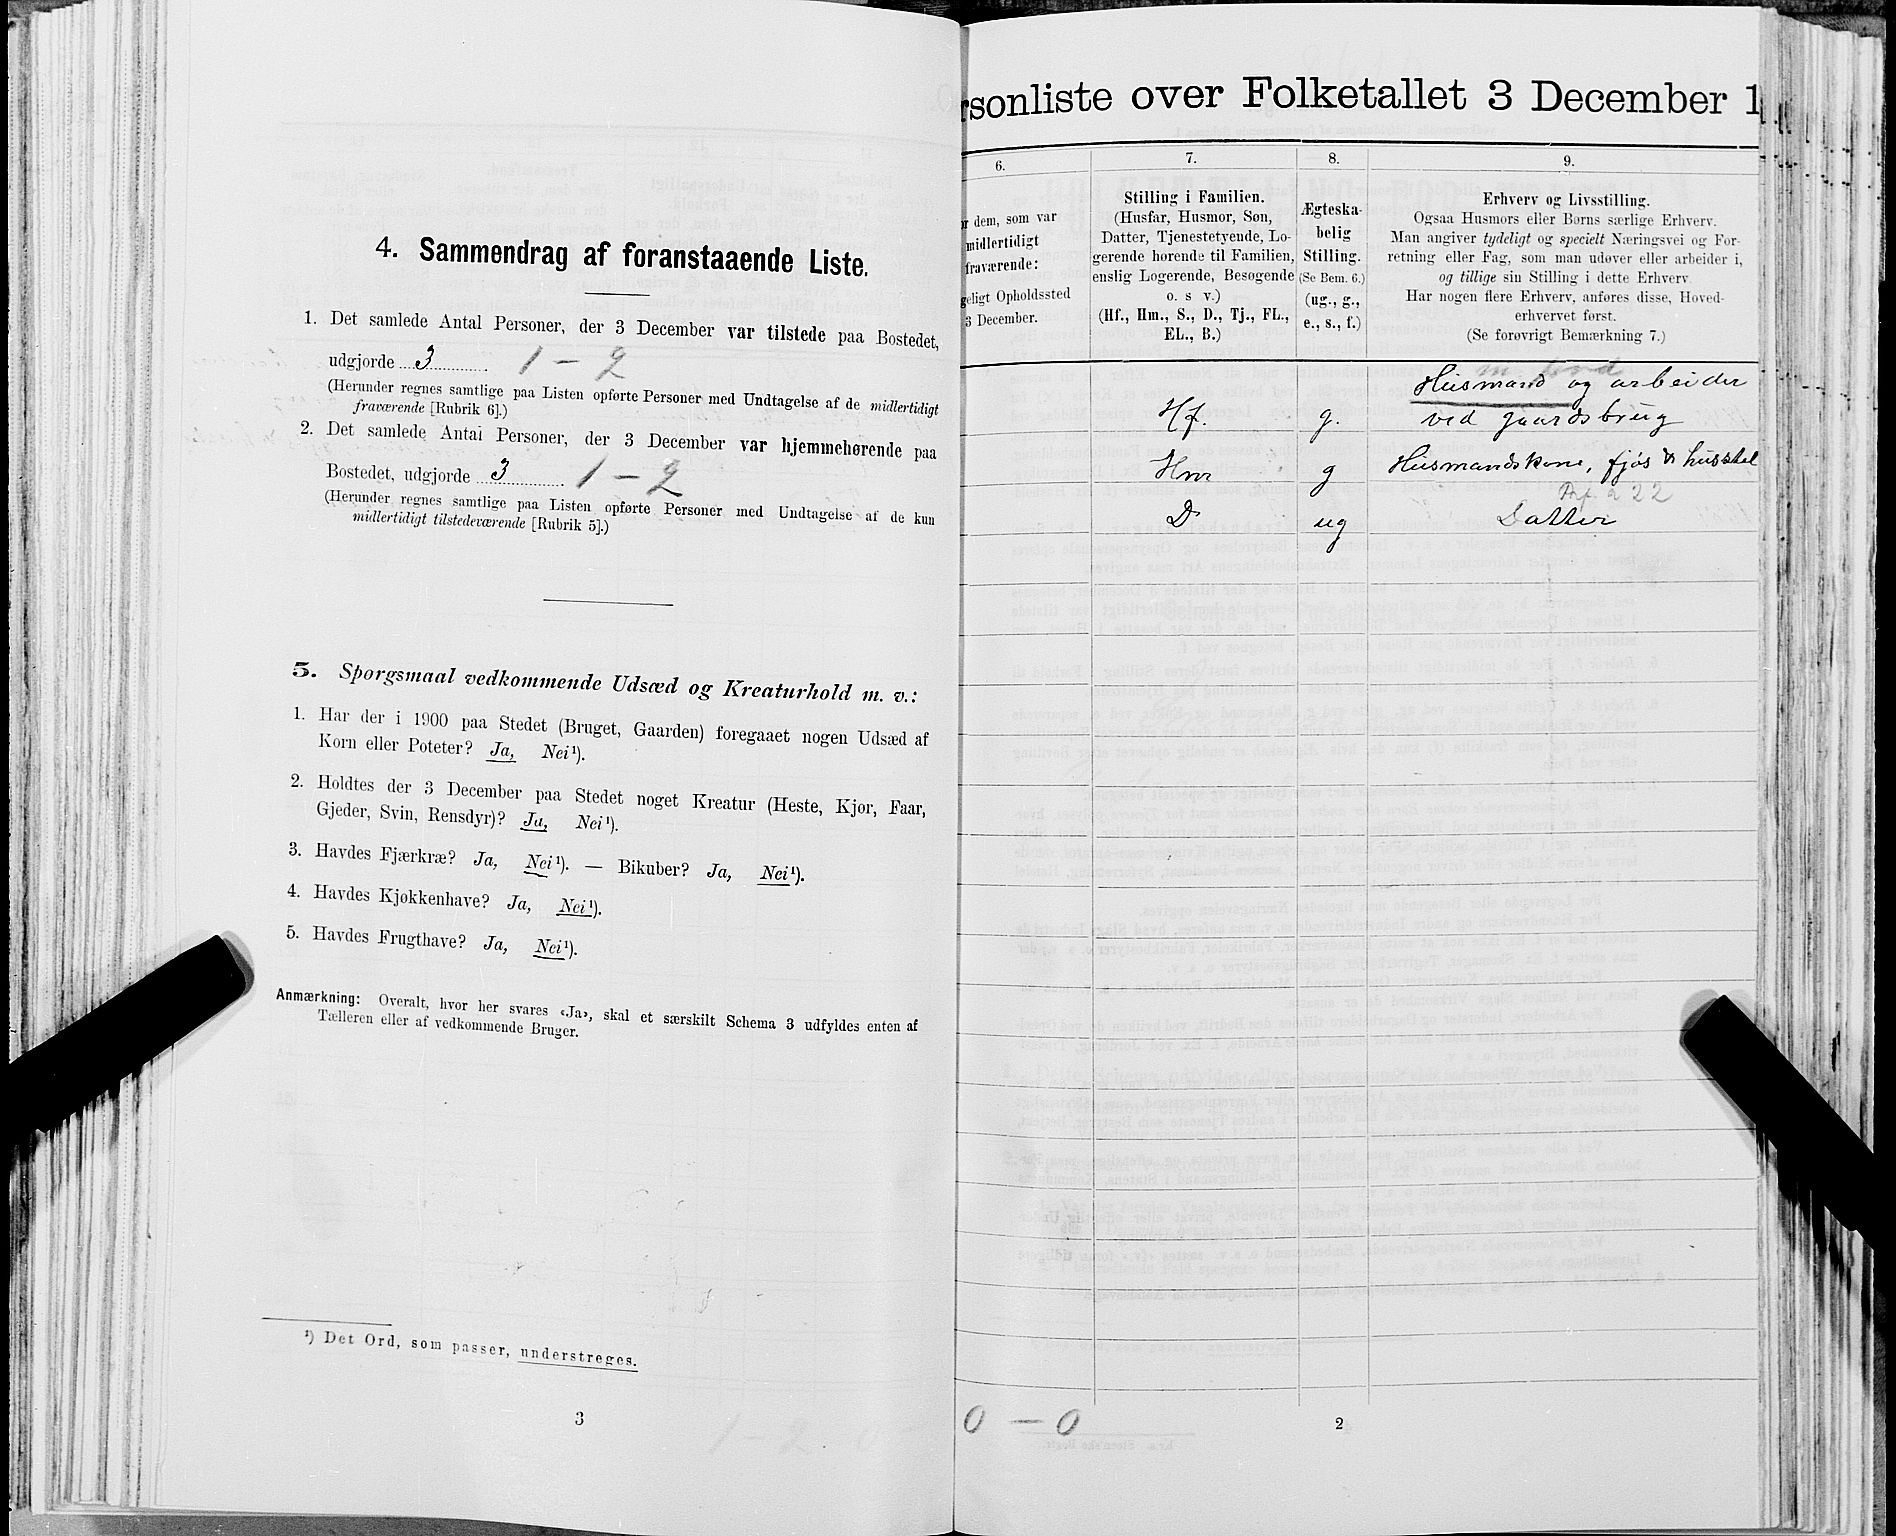 4. Sammendrag af foranstaaende Liste.
1. Det samlede Antal Personer, der 3 December var tilstede paa Bostedet,
udgjorde 3 1 – 2
(Herunder regnes samtlige paa Listen opførte Personer med Undtagelse af de midlertidigt
fraværende [Rubrik 6].)
2. Det samlede Antal Personer, der 3 December var hjemmehørende paa
Bostedet, udgjorde 3 1 – 2
(Herunder regnes samtlige paa Listen opførte Personer med Undtagelse af de kun
midlertidigt tilstedeværende [Rubrik 5].)
5. Spørgsmaal vedkommende Udsæd og Kreaturhold m. v.:
1. Har der i 1900 paa Stedet (Bruget, Gaarden) foregaaet nogen Udsæd af
Korn eller Poteter? Ja, Nei¹).
2. Holdtes der 3 December paa Stedet noget Kreatur (Heste, Kjør, Faar,
Gjeder, Svin, Rensdyr)? Ja, Nei¹).
3. Havdes Fjærkræ? Ja, Nei¹). — Bikuber? Ja, Nei¹).
4. Havdes Kjøkkenhave? Ja, Nei¹).
5. Havdes Frugthave? Ja, Nei¹).
Anmærkning: Overalt, hvor her svares «Ja», skal et særskilt Schema 3 udfyldes enten af
Tælleren eller af vedkommende Bruger.
¹) Det Ord, som passer, understreges.
3
1 – 2 0
rsonliste over Folketallet 3 December 1
6.
r dem, som var
midlertidigt
fraværende:
geligt Opholdssted
3 December.
7.
Stilling i Familien.
(Husfar, Husmor, Søn,
Datter, Tjenestetyende, Lo-
gerende hørende til Familien,
enslig Logerende, Besøgende
o. s v.)
(Hf., Hm., S., D., Tj., FL.,
EL., B.)
8.
Ægteska-
belig
Stilling.
(Se Bem. 6.)
(ug., g.,
e., s., f.)
9.
Erhverv og Livsstilling.
Ogsaa Husmors eller Børns særlige Erhverv.
Man angiver tydeligt og specielt Næringsvei og For-
retning eller Fag, som man udøver eller arbeider i,
og tillige sin Stilling i dette Erhverv.
Har nogen flere Erhverv, anføres disse, Hoved-
erhvervet først.
(Se forøvrigt Bemærkning 7.)
m jord
Husmand og arbeider
Hf. g. ved gaardsbrug
Hm g Husmandskone, fjøs & husstel
D ug Datter
0 – 0
2